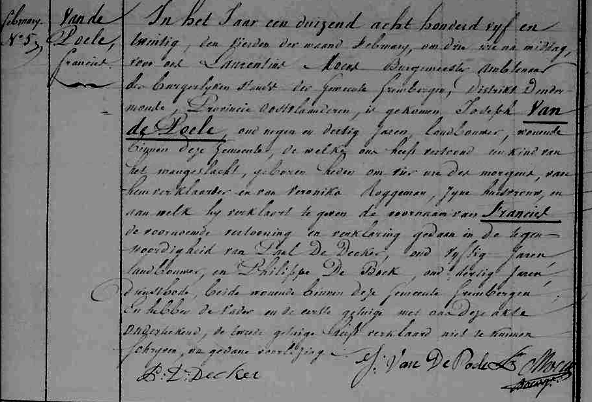 february.
N° 5,
Van de
Poele,
francies.
In het Jaar een duizend acht honderd vyf en
twintig, den vierden der maand february, om drie uren na middag,
voor ons Laurentius Moens Burgemeester Ambtenaar
der burgerlyken stand der gemeente Grembergen, District Dender-
monde, Provincie Oostvlaanderen, is gekomen Joseph Van
de Poele, oud negen en dertig Jaren, landbouwer, woonende
binnen deze gemeente, de welke ons heeft vertoond een kind van
het mansgeslacht, geboren heden om vier uren des morgens, van
hem verklaarder en van Veronika Roggeman, zyne huisvrouw, en
aan welk hy verklaart te geven de voornaam van Francies
de voornoemde vertooning en verklaring gedaan in de tegen-
woordigheid van Paul De Decker, oud vyftig Jaren
landbouwer, en Philippe De Bock, oud dertig Jaren
dienstbode, beide woonende binnen deze gemeente Grembergen
En hebben de vader en de eerste getuige met ons deze akte
onderteekend, de tweede getuige heeft verklaard niet te kunnen
schryven, na gedane voorlezing
J: Van De Poele
P: D: Decker